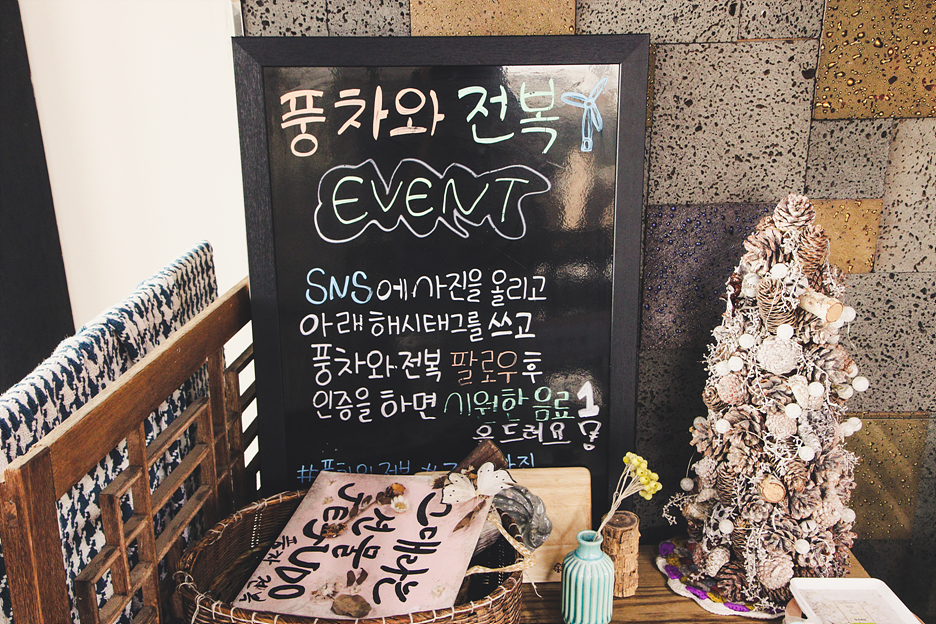 풍차와 전복
EVENT
SNS에 사진을 올리고
아래 해시태그를 쓰고
풍차와전복 팔로우 후
인증을 하면 시원한 음료 1
을 드려요
그대라는
선물
JEJU